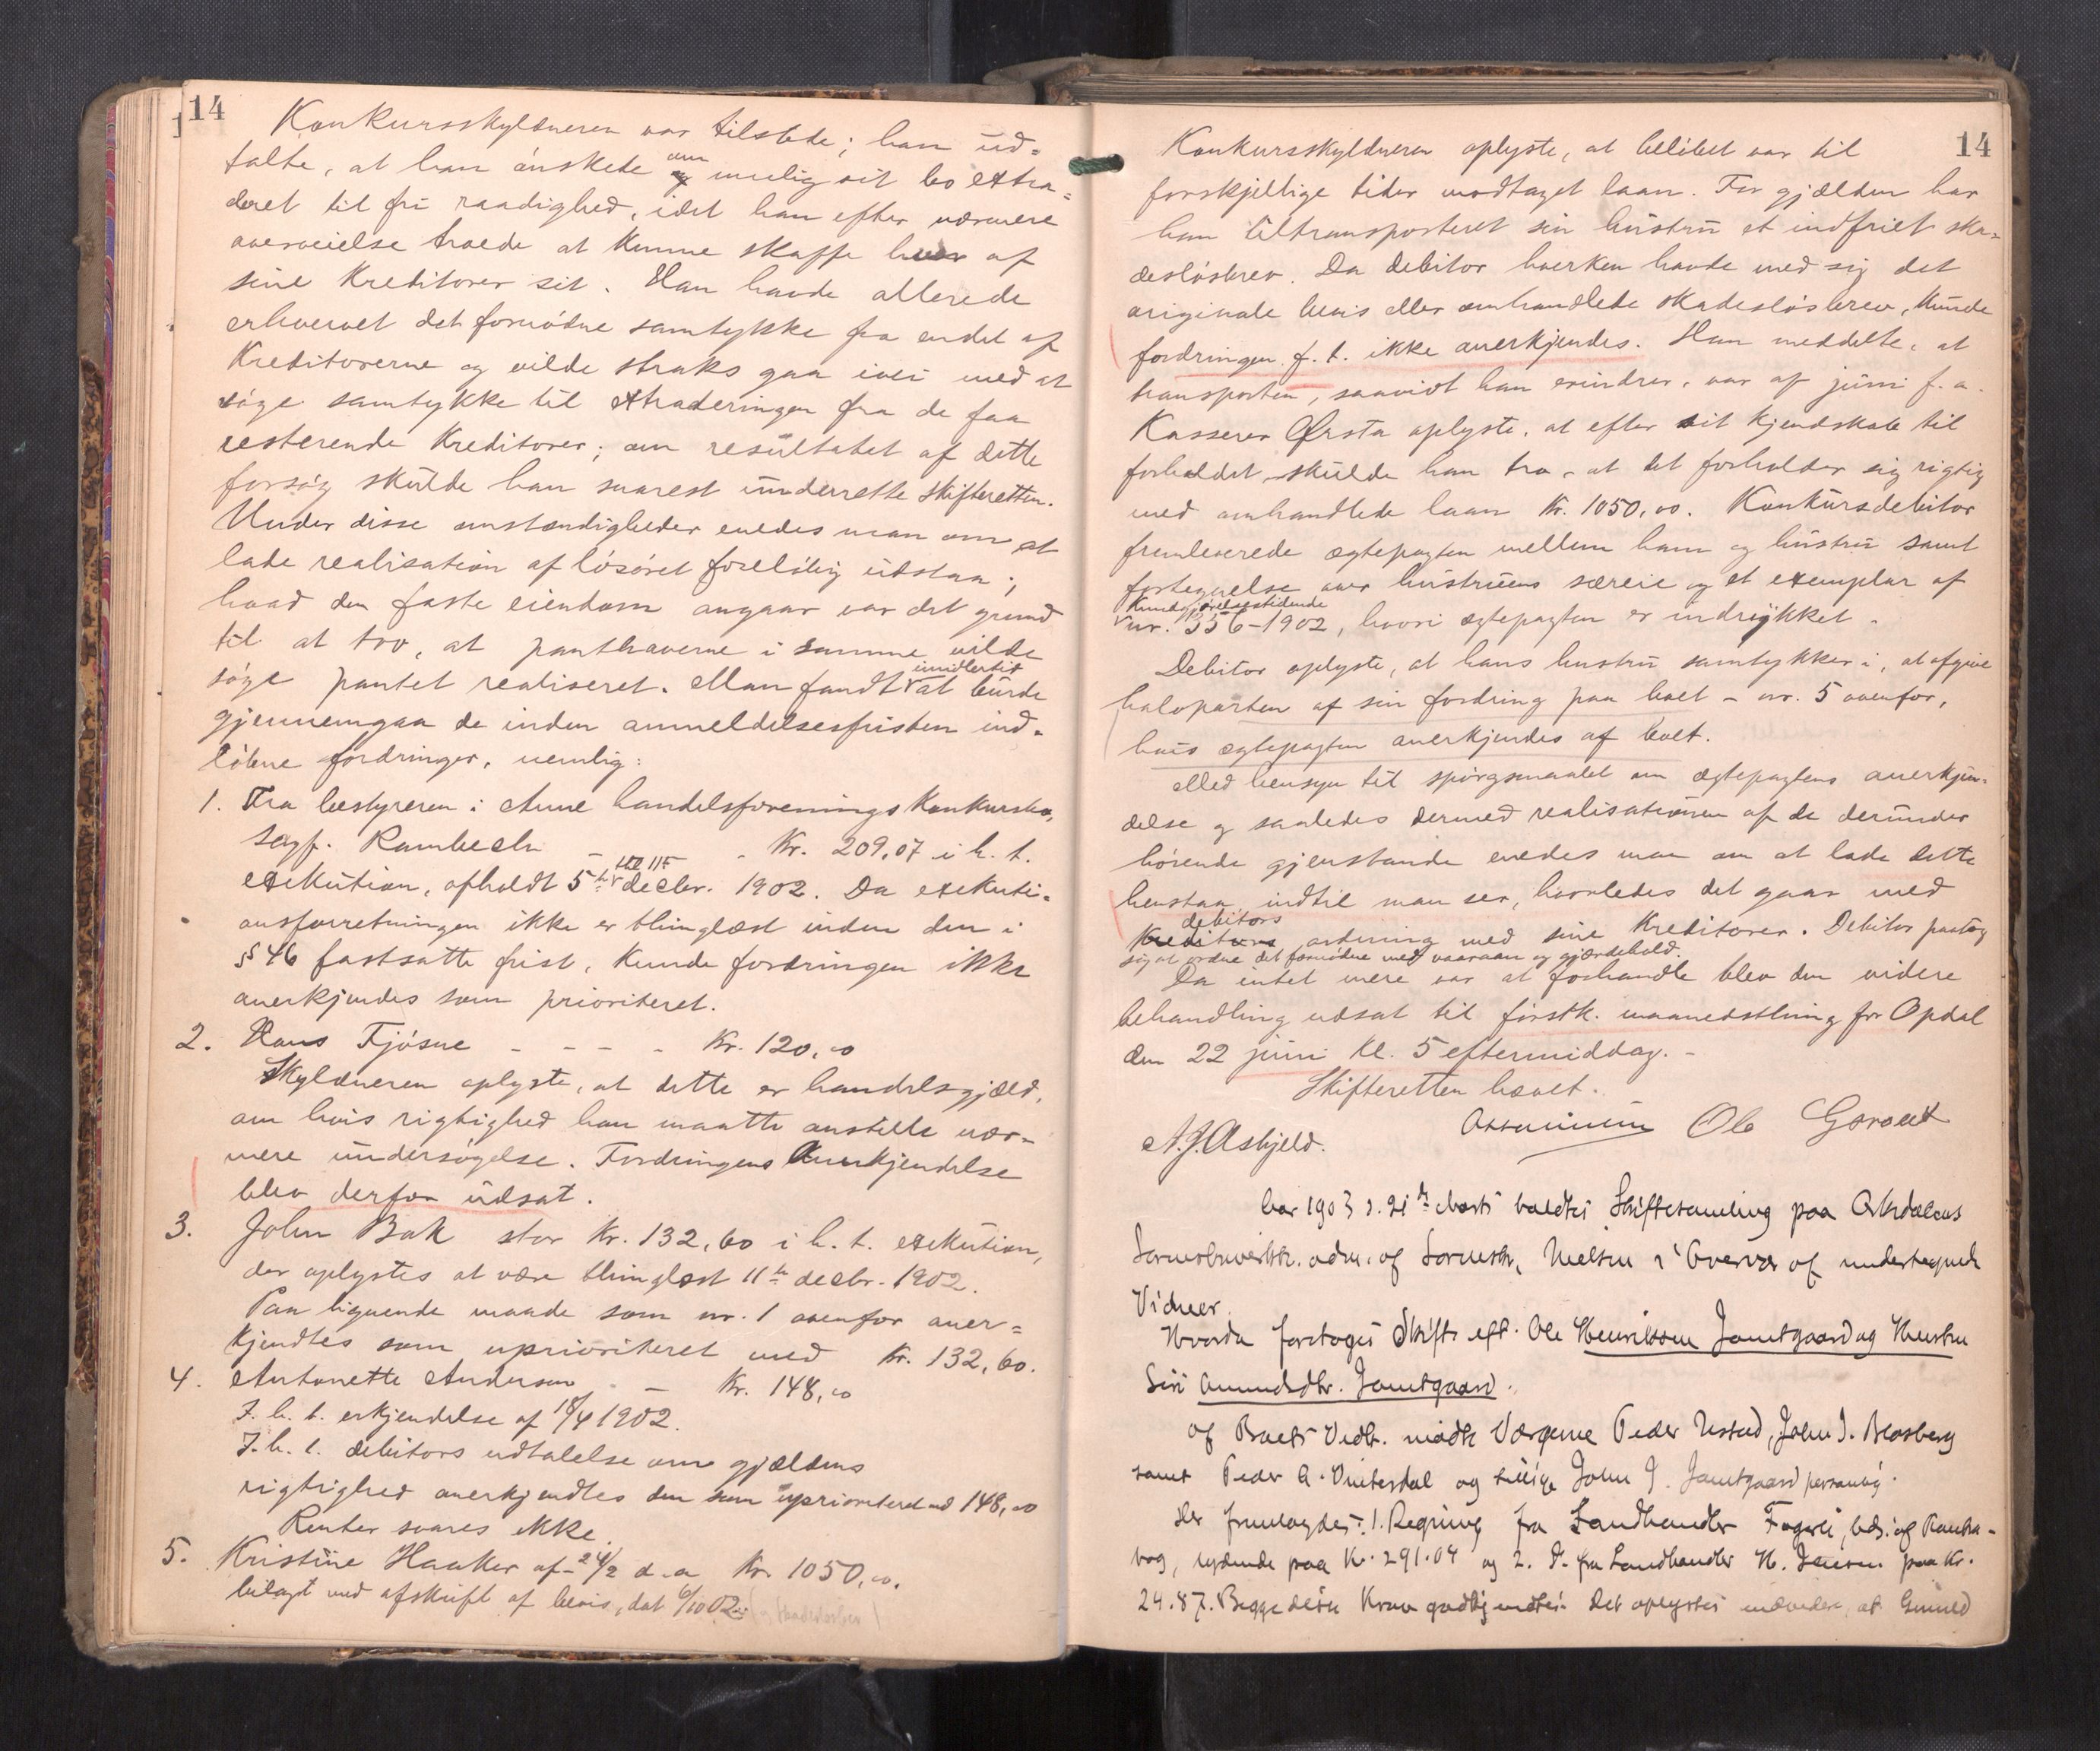 14
Konkursskyldneren var tilstede; han ud=
talte, at han ønskede om mulig sit bo extra=
deret til fri raadighed, idet han efter nærmere
overveielse troede at kunne skaffe hver af
sine Kreditorer sit. Han havde allerede
erhvervet det fornødne samtykke fra endel af
Kreditorerne og vilde straks gaa ivei med at
søge samtykke til extraderingen fra de faa
resterende Kreditorer; om resultatet af dette
forsøg skulde han snarest underrette skifteretten.
Under disse omstændigheder enedes man om at
lade realisation af løsøret foreløbig udstaa;
hvad den faste eiendom angaar var det grund
til at tro, at panthaverne i samme vilde
søge pantet realiseret. Man fandt imidlertid at burde
gjennemgaa de inden anmeldelsesfristen ind=
løbne fordringer, nemlig:
1. Fra bestyreren i Aune handelsforenings Konkursbo,
sagf. Rambech - - Kr. 209,07 i h. t.
exekution, afholdt 5te decbr. 1902. Da exekuti=
onsforretningen ikke er thinglæst inden den i
§ 46 fastsatte frist, kunde fordringen ikke
anerkjendes som prioriteret.
2. Hans Tjøsne - - - - Kr. 120,00
Skyldneren oplyste, at dette er handelsgjæld,
om hvis rigtighed han maatte anstille nær=
mere undersøgelse. Fordringens Anerkjendelse
blev derfor udsat.
3. John Bak stor Kr. 132,60 i h. t. exekution,
der oplystes at være thinglæst 11te decbr. 1902.
Paa lignende maade som nr. 1 ovenfor aner=
kjendtes som uprioriteret med Kr. 132,60.
4. Antonette Anderson - - Kr. 148,00
I. h. t. erkjendelse af 18/4 1902.
I. h. t. debitors udtalelse om gjældens
rigtighed anerkjendtes den som uprioriteret med 148,00
Renter svares ikke.
5. Kristine Haaker af 24/2 d. a Kr. 1050,00.
bilagt med afskrift af bevis, dat 6/10 02
14
Konkursskyldneren oplyste, at beløbet var til
forskjellige tider modtaget laan. For gjælden har
han tiltransporteret sin hustru et indfriet ska=
desløsbrev. Da debitor hverken havde med sig det
originale bevis eller omhandlede skadesløsbrev, kunde
fordringen f. t. ikke anerkjendes. Han meddelte, at
transporten, saavidt han erindrer, var af juni f. a.
Kasserer Ørsta oplyste, at efter sit kjendskab til
forholdet, skulde han tro, at det forholder sig rigtig
med omhandlede laan Kr. 1050,00. Konkursdebitor
fremleverede ægtepagten mellem ham og hustru samt
fortegnelse over hustruens særeie og et exemplar af
Kundgjørelsestidende
nr. 356-1902, hvori ægtepagten er indrykket.
Debitor oplyste, at hans hustru samtykker i, at afgive
halvparten af sin fordring paa boet - nr. 5 ovenfor,
hvis ægtepagten anerkjendes af boet.
Med hensyn til spørgsmaalet om ægtepagtens anerkjen=
delse og saaledes dermed realisationen af de derunder
hørende gjenstande enedes man om at lade dette
henstaa, indtil man ser, hvorledes det gaar med
debitors
ordning med sine Kreditorer. Debitor paatog
sig at ordne det fornødne med vaaraan og gjærdehold.
Da intet mere var at forhandle blev den videre
behandling udsat til førstk. maanedsthing for Opdal
den 22 juni Kl. 5 eftermiddag. -
Skifteretten hævet.
Ole
A. J. Asbjeld.
Aar 1903 d. 21de Marts holdtes Skiftesamling paa
adm. af Nielsen i Overvær af undertegnede
Vidner.
Hvorda foretoges Skifte eft. Ole Henriksen Jamtgaard og Hustru
Siri Amundsdtr. Jamtgaard.
af Boets Vedk. mødte Værgerne Peder Ustad, John J. Blaasberg
samt Peder A. Vinterdal og tillige John J. Jamtgaard personlig.
Der fremlagdes: 1. Regning fra Landhandler Fagerli,
lydende paa Kr. 291.04 og 2. D. fra Landhandler H. Jensen paa Kr.
24.87. Begge disse Krav godkjendtes. Det oplystes endvidere, at